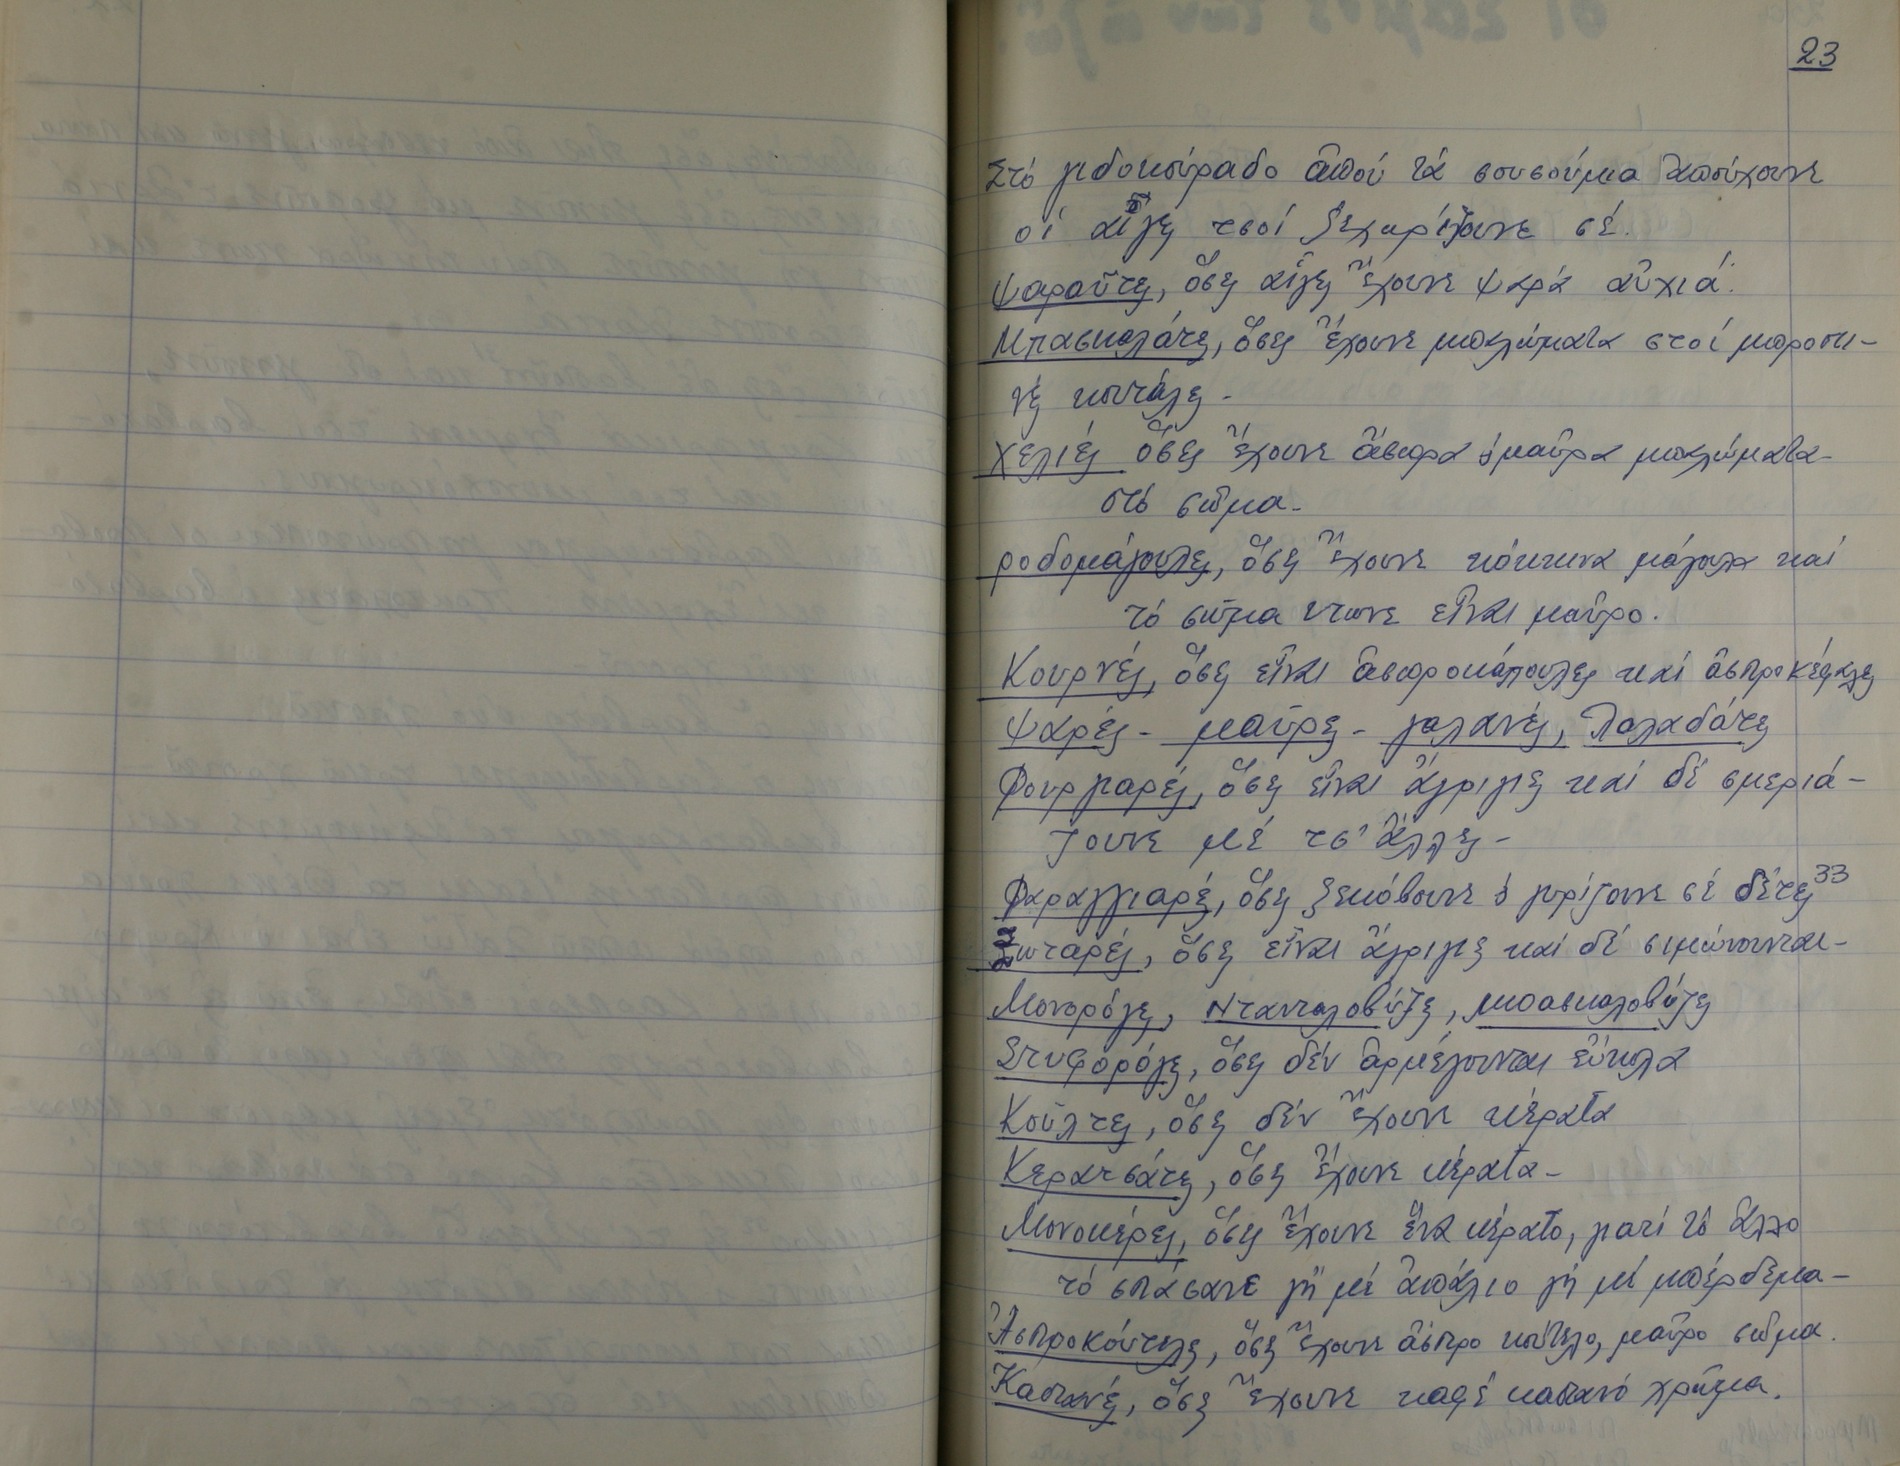 23
Στό γιδοκούραδο ἀπού τά σουσούμια ἁπούχουνε
οἱ αἶγες τσοί ξεχωρίζουνε σέ.
Ψαραῦτες, ὅσες αἶγες ἔχουνε ψαρά αὐχιά.
Μπασκαλάτες, ὅσες ἔχουνε μπαλώματα στσί μπροστι-
νές κουτάλες-
Χελιές ὅσες ἔχουνε ἄσπρα ἤ μαῦρα μπαλώματα-
στό σῶμα-
ροδομάγουλες, ὅσες ἔχουνε κόκκινα μάγουλα καί
τό σῶμα ντωνε εἶναι μαῦρο.
Κουρνές, ὅσες εἶναι ἀσπροκάπουλες καί ἀσπροκέφαλες
Ψαρές- μαῦρες- γαλανές, Λαλαδάτες
Φουργιαρές, ὅσες εἶναι ἄγριγιες καί δέ σμεριά-
ζουνε μέ τσ' ἄλλες-
Φαραγγιαρές, ὅσες ξεκόβουνε ἤ γυρίζουνε σέ δέτες 33
Ξωταρές, ὅσες εἶναι ἄγριγιες καί δέ σιμώνουνται-
Μονορόγες, Ντανταλοβύζες, μπασκαλοβύζες
Στυφορόγες, ὅσες δέν ἀρμέγουνται εὔκολα
Κοῦλτες, ὅσες δέν ἔχουνε κέρατα
Κερατσάτες, ὅσες ἔχουνε κέρατα-
Μονοκέρες, ὅσες ἔχουνε ἕνα κέρατο, γιατί τό ἄλλο
τό σπάσανε γἤ μέ ἀπάλιο γἤ μέ μπέρδεμα-
Ἀσπροκούτελες, ὅσες ἔχουνε ἄσπρο κούτελο, μαῦρο σῶμα.
Καστανές, ὅσες ἔχουνε καφέ καστανό χρῶμα.